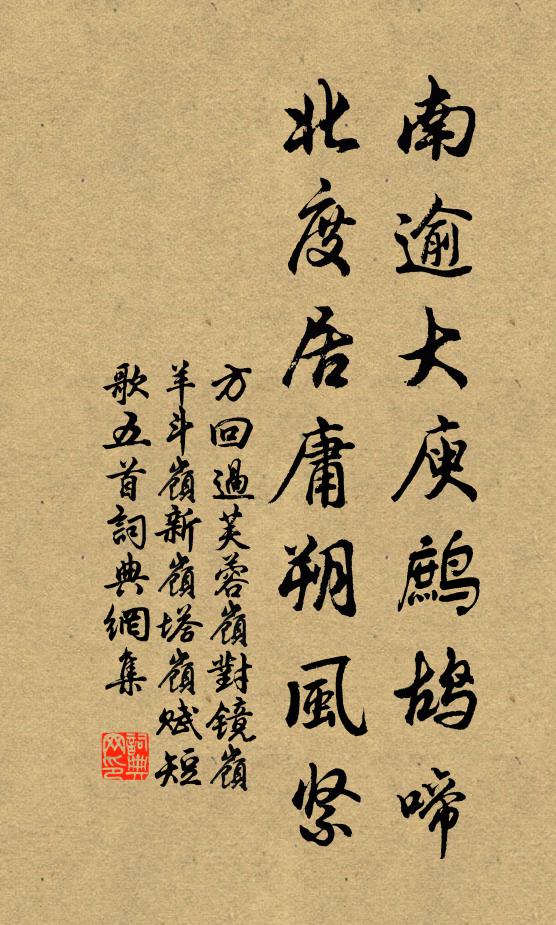 南逾大庾鷓鴣啼
北度居庸朔風緊
方回過芙蓉嶺對鏡嶺
羊斗嶺新嶺塔嶺賦短
歌五首詞典網集
詞典网印